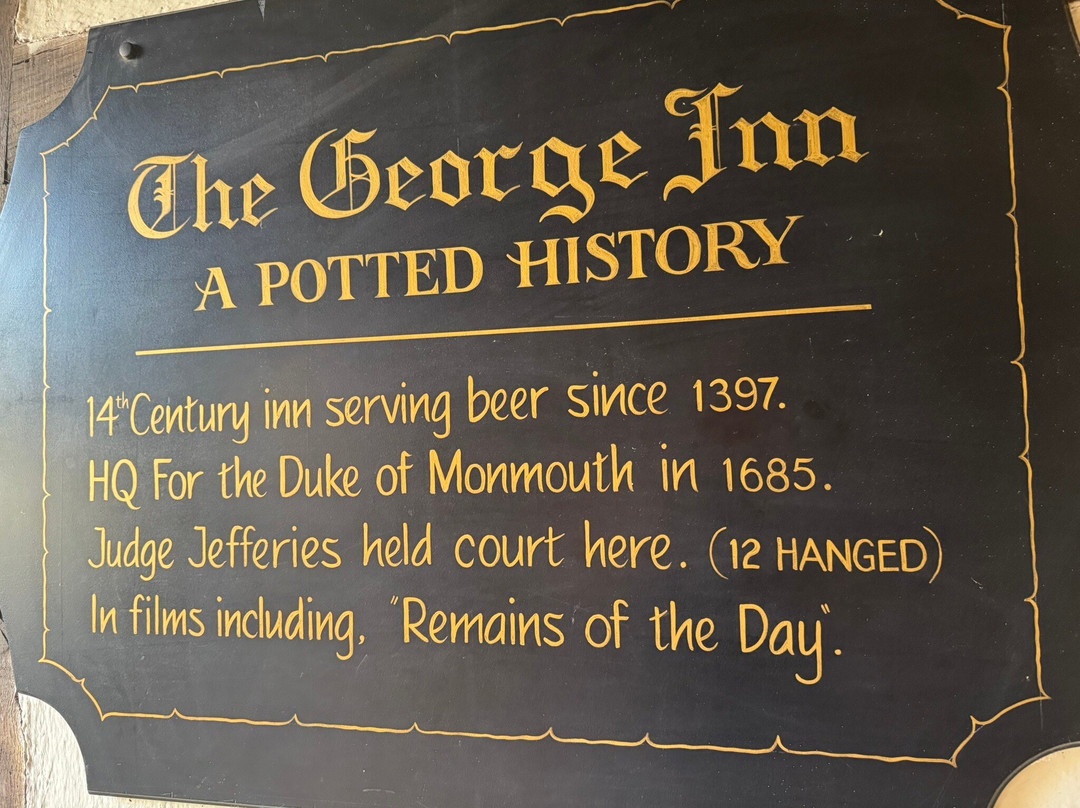 The George Inn
A POTTED HISTORY
14th Century inn serving beer since 1397.
HQ For the Duke of Monmouth in 1685.
Judge Jefferies held court here. (12 HANGED)
In films including, "Remains of the Day".